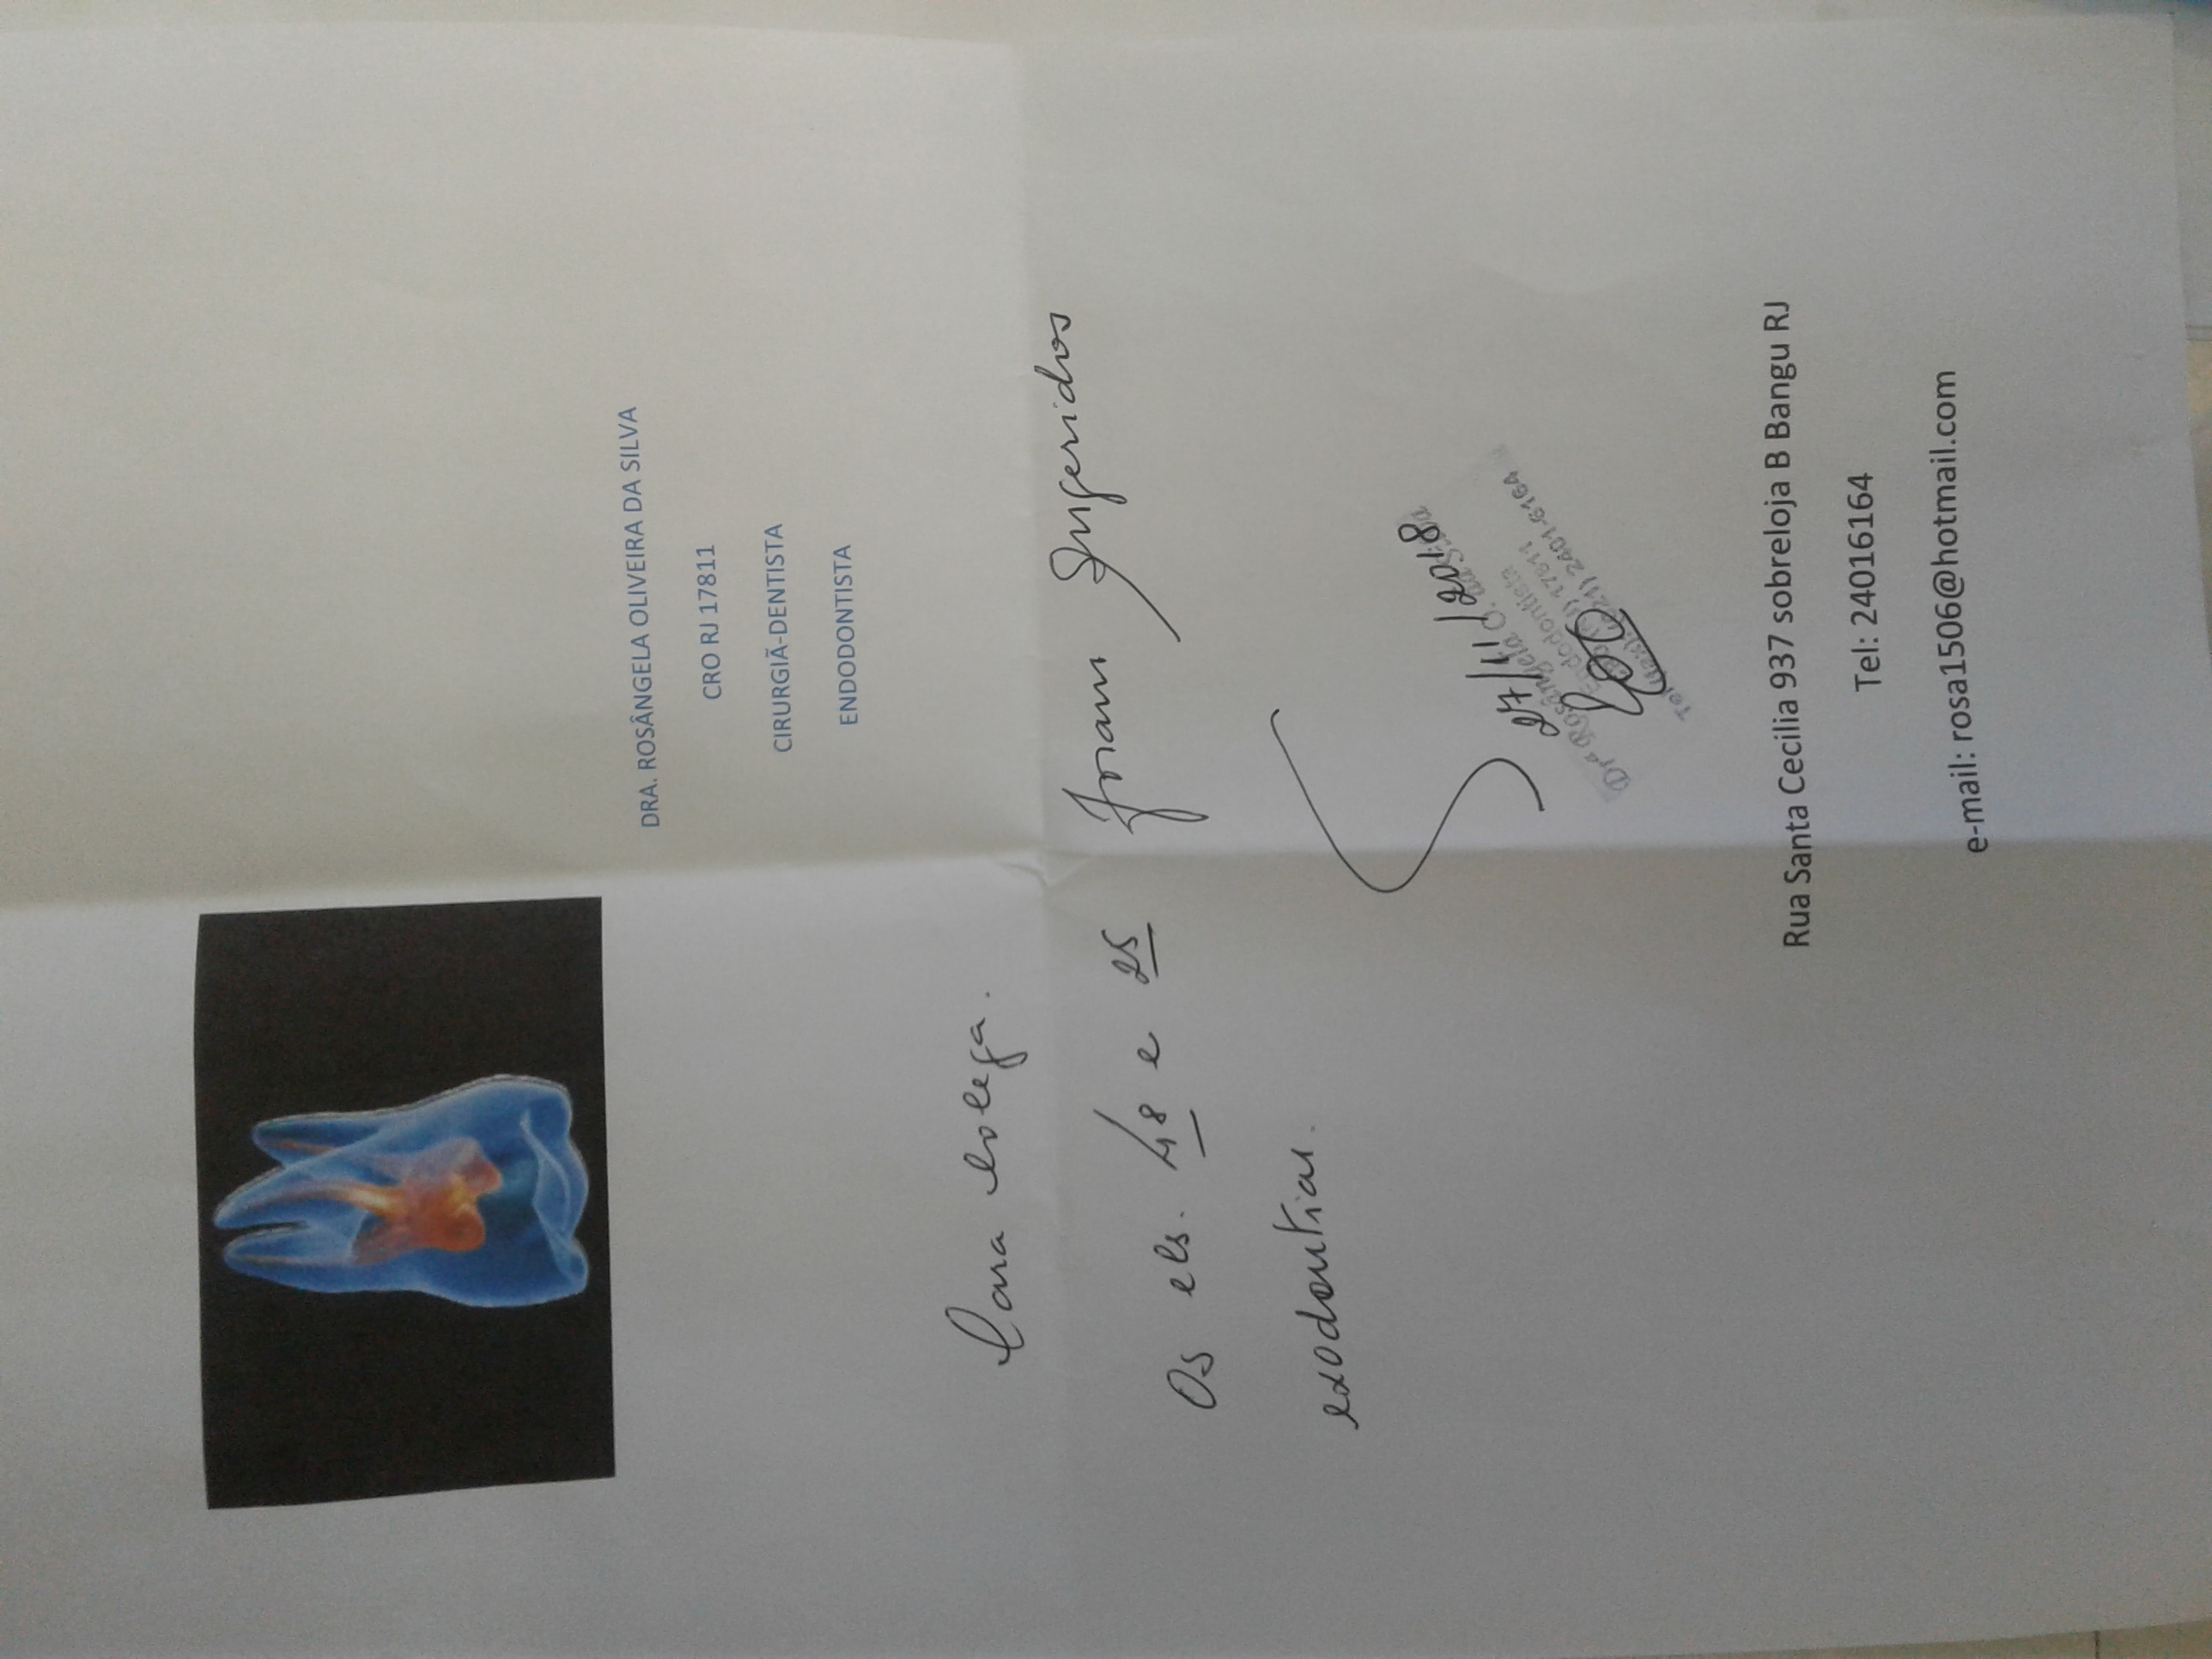 DRA. ROSÂNGELA OLIVEIRA DA SILVA
CRO RJ 17811
CIRURGIÃ-DENTISTA
ENDODONTISTA
Cara colega.
Os els. 48 e 25 foram sugeridos
exodontias.
27/11/2018
Drª Rosângela O. da Silva
Endodontista
CRO (RJ) 17811
Tel (fax): (021) 2401-6164
Rua Santa Cecilia 937 sobreloja B Bangu RJ
Tel: 24016164
e-mail: rosa1506@hotmail.com